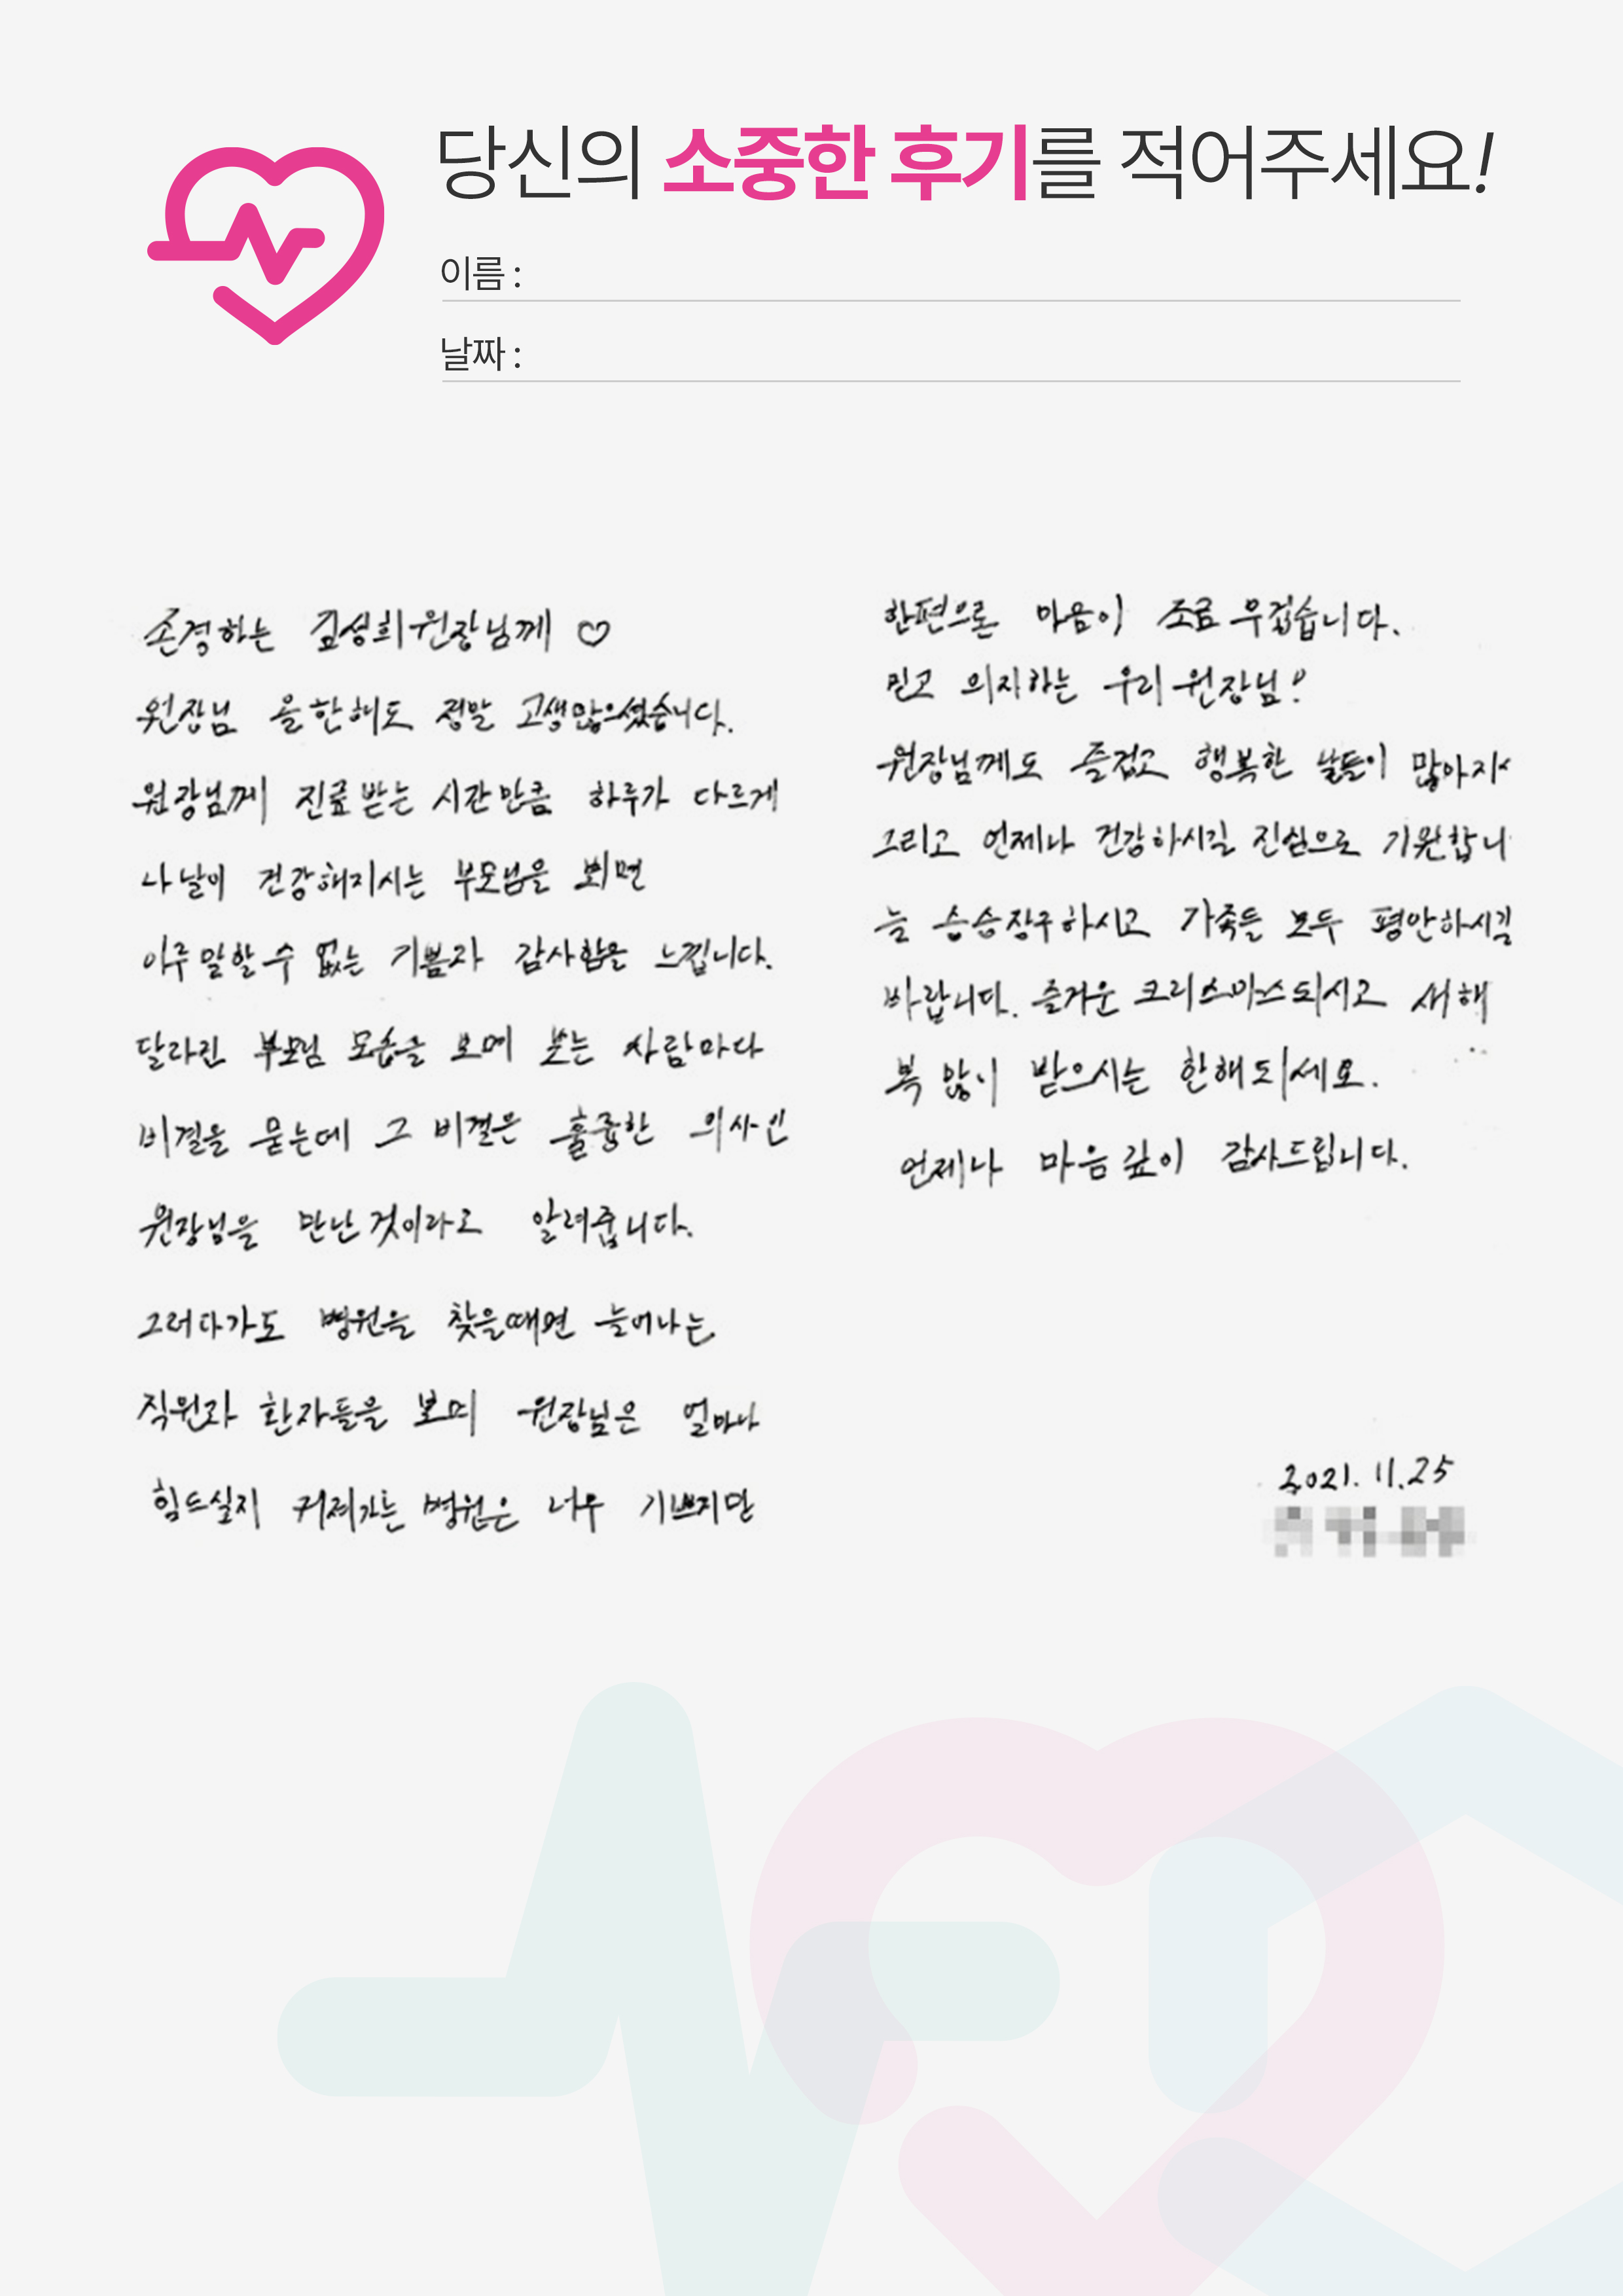 당신의 소중한 후기를 적어주세요!
이름 :
날짜 :
존경하는 김성희원장님께 ♡
원장님 올한해도 정말 고생많으셨습니다.
원장님께 진료받는 시간만큼 하루가 다르게
나날이 건강해지시는 부모님을 뵈면
이루말할수 없는 기쁨과 감사함을 느낍니다.
달라진 부모님 모습을 보며 보는 사람마다
비결을 묻는데 그 비결은 훌륭한 의사인
원장님을 만난것이라고 알려줍니다.
그러다가도 병원을 찾을때면 늘어나는
직원과 환자들을 보며 원장님은 얼마나
힘드실지 커져가는 병원은 너무 기쁘지만
한편으론 마음이 조금 무겁습니다.
믿고 의지하는 우리 원장님!
원장님께도 즐겁고 행복한 날들이 많아지
그리고 언제나 건강하시길 진심으로 기원합니
늘 승승장구하시고 가족들 모두 평안하시길
바랍니다. 즐거운 크리스마스되시고 새해
복 많이 받으시는 한해되세요.
언제나 마음깊이 감사드립니다.
2021. 11.25